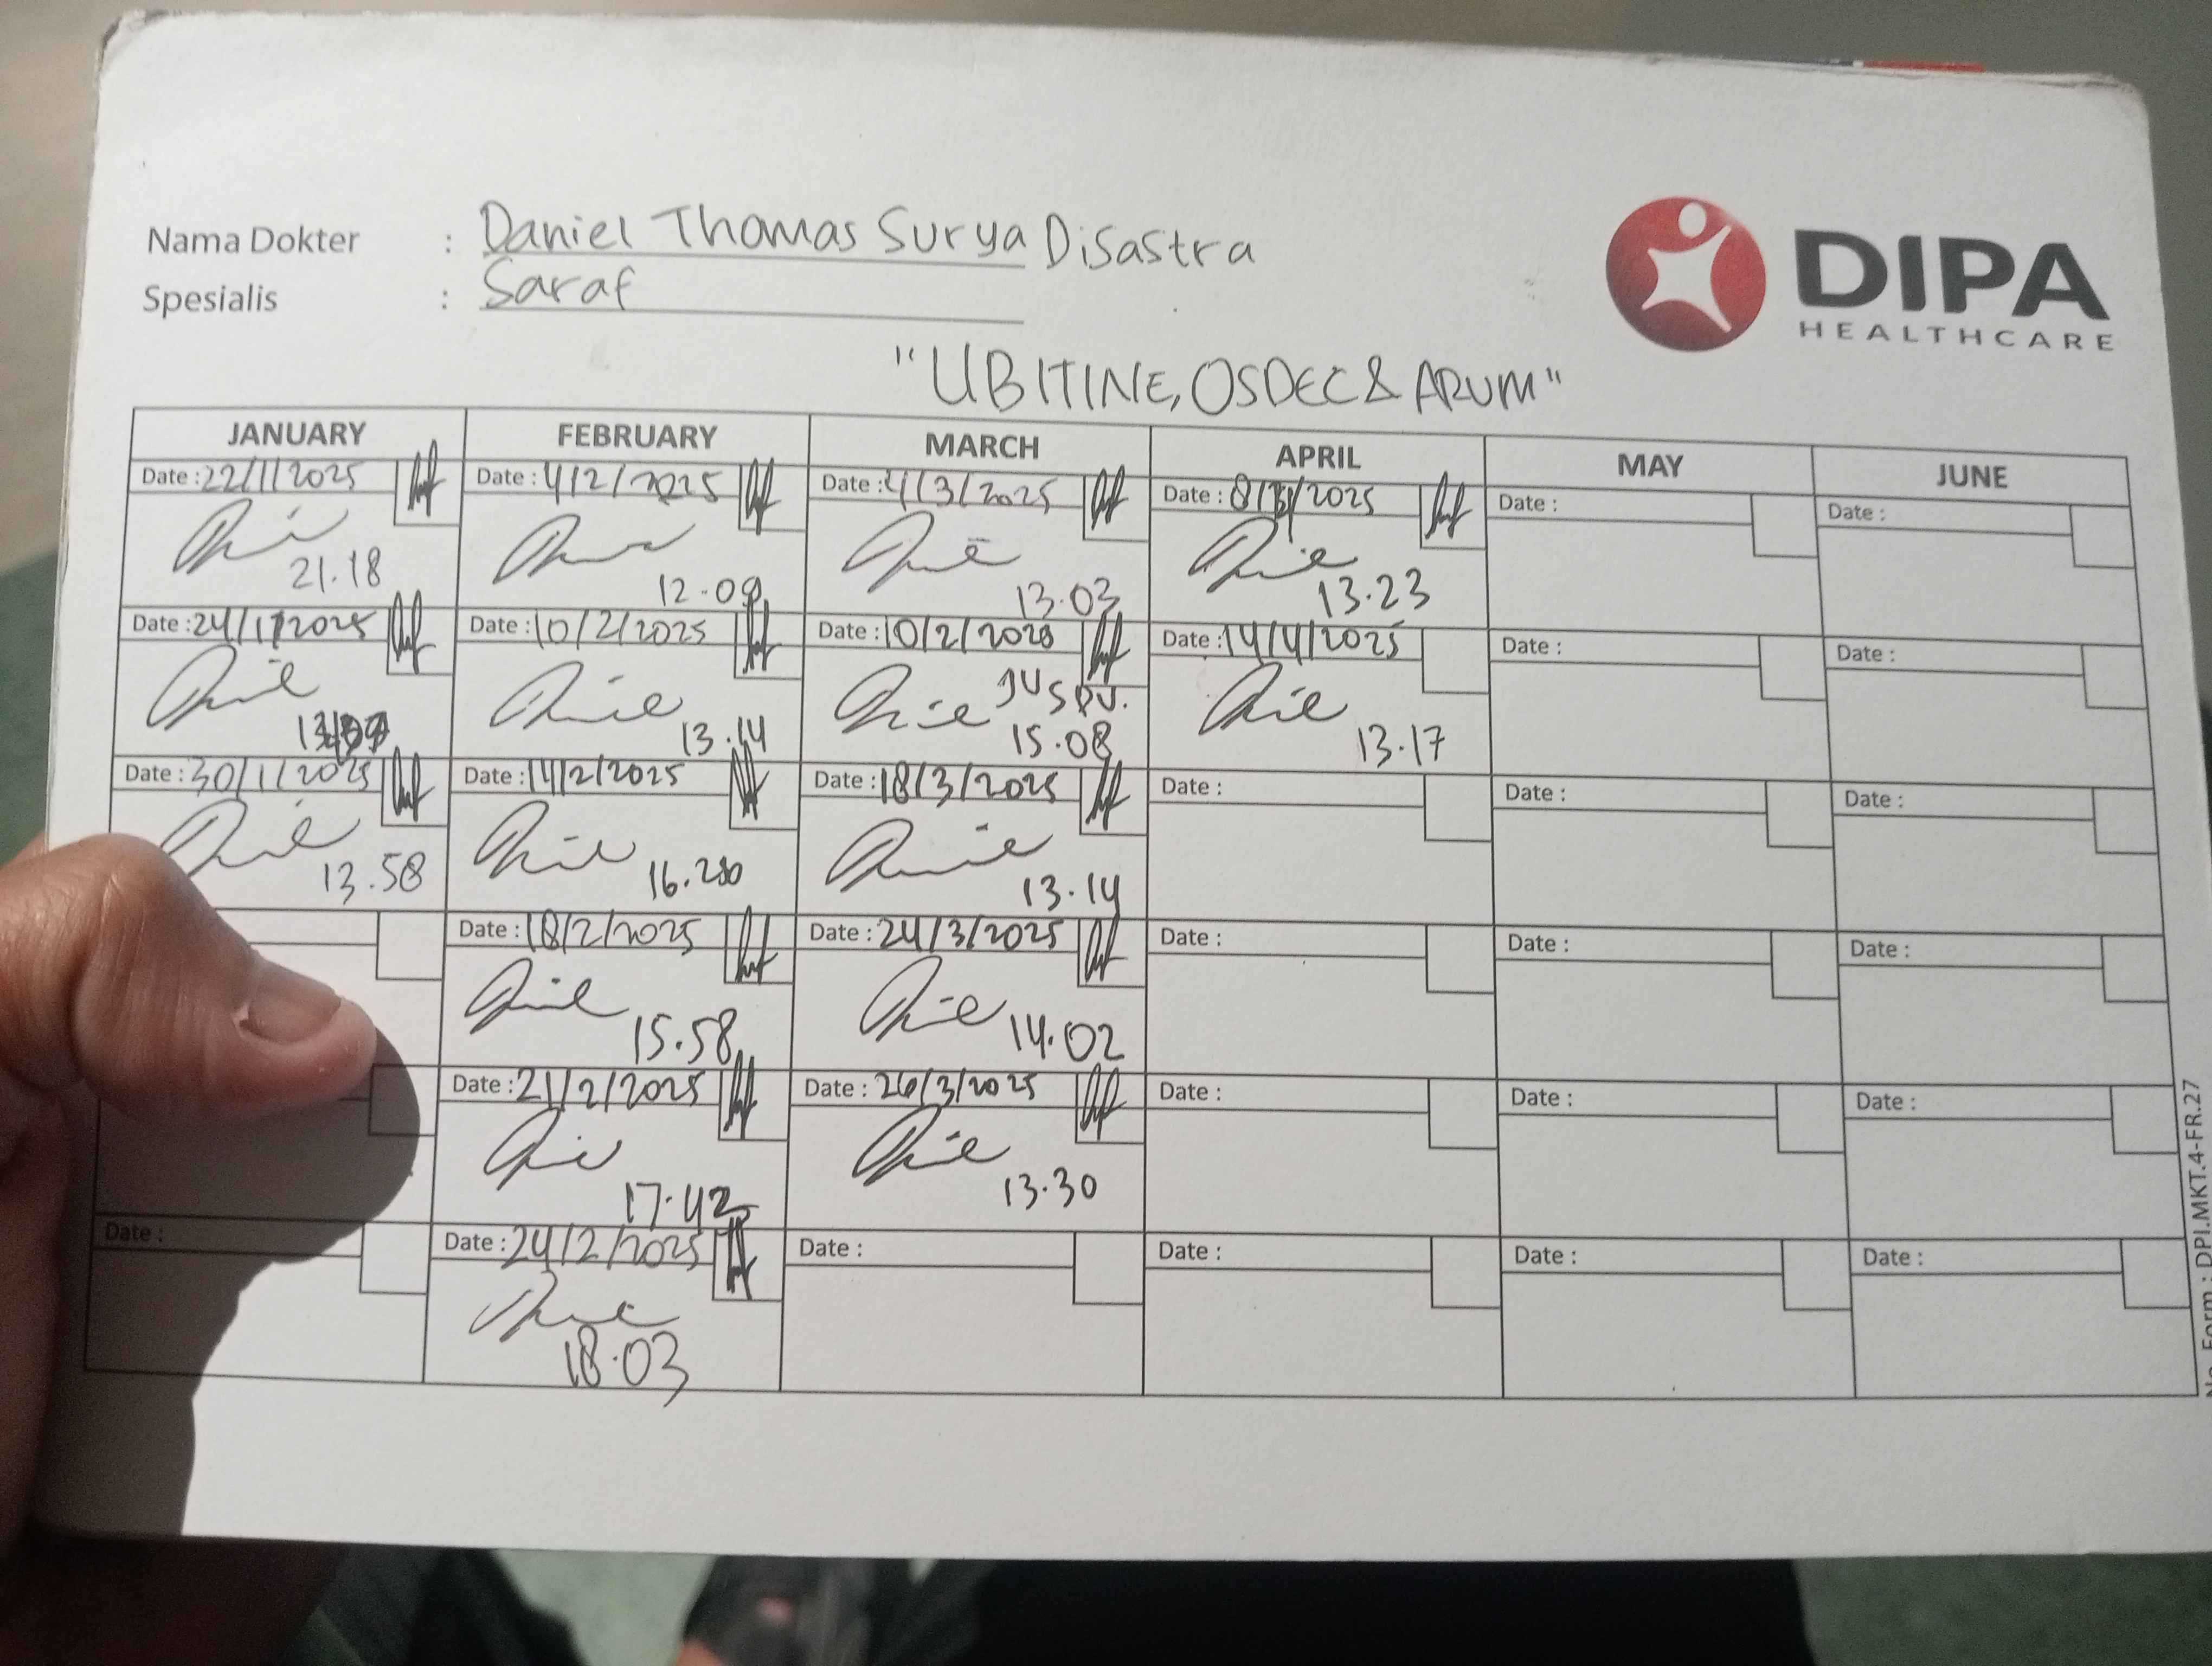 Nama Dokter : Daniel Thomas Surya Disastra
Spesialis : Saraf
DIPA
HEALTHCARE
"UBITINE, OSDEC & ARUM"
JANUARY FEBRUARY MARCH APRIL MAY JUNE
Date : 22/1/2025 Date : 4/2/2025 Date : 4/3/2025 Date : 8/ /2025 Date : Date :
21.18 12.09 13.03 13.23
Date : 24/1/2025 Date : 10/2/2025 Date : 10/2/2025 Date : 14/4/2025 Date : Date :
13.14 15.08 13.17
Date : 30/1/2025 Date : 14/2/2025 Date : 18/3/2025 Date : Date : Date :
13.58 13.14
Date : 18/2/2025 Date : 24/3/2025 Date : Date : Date :
15.58 14.02
Date : 21/2/2025 Date : 26/3/2025 Date : Date : Date :
17.42 13.30
Date : Date : 24/2/2025 Date : Date : Date : Date :
18.03
No. Form : DPI.MKT.4-FR.27